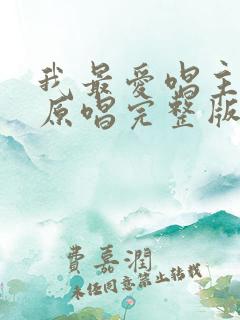 我最爱唱主
原唱完整版
费嘉润
未经同意禁止转载